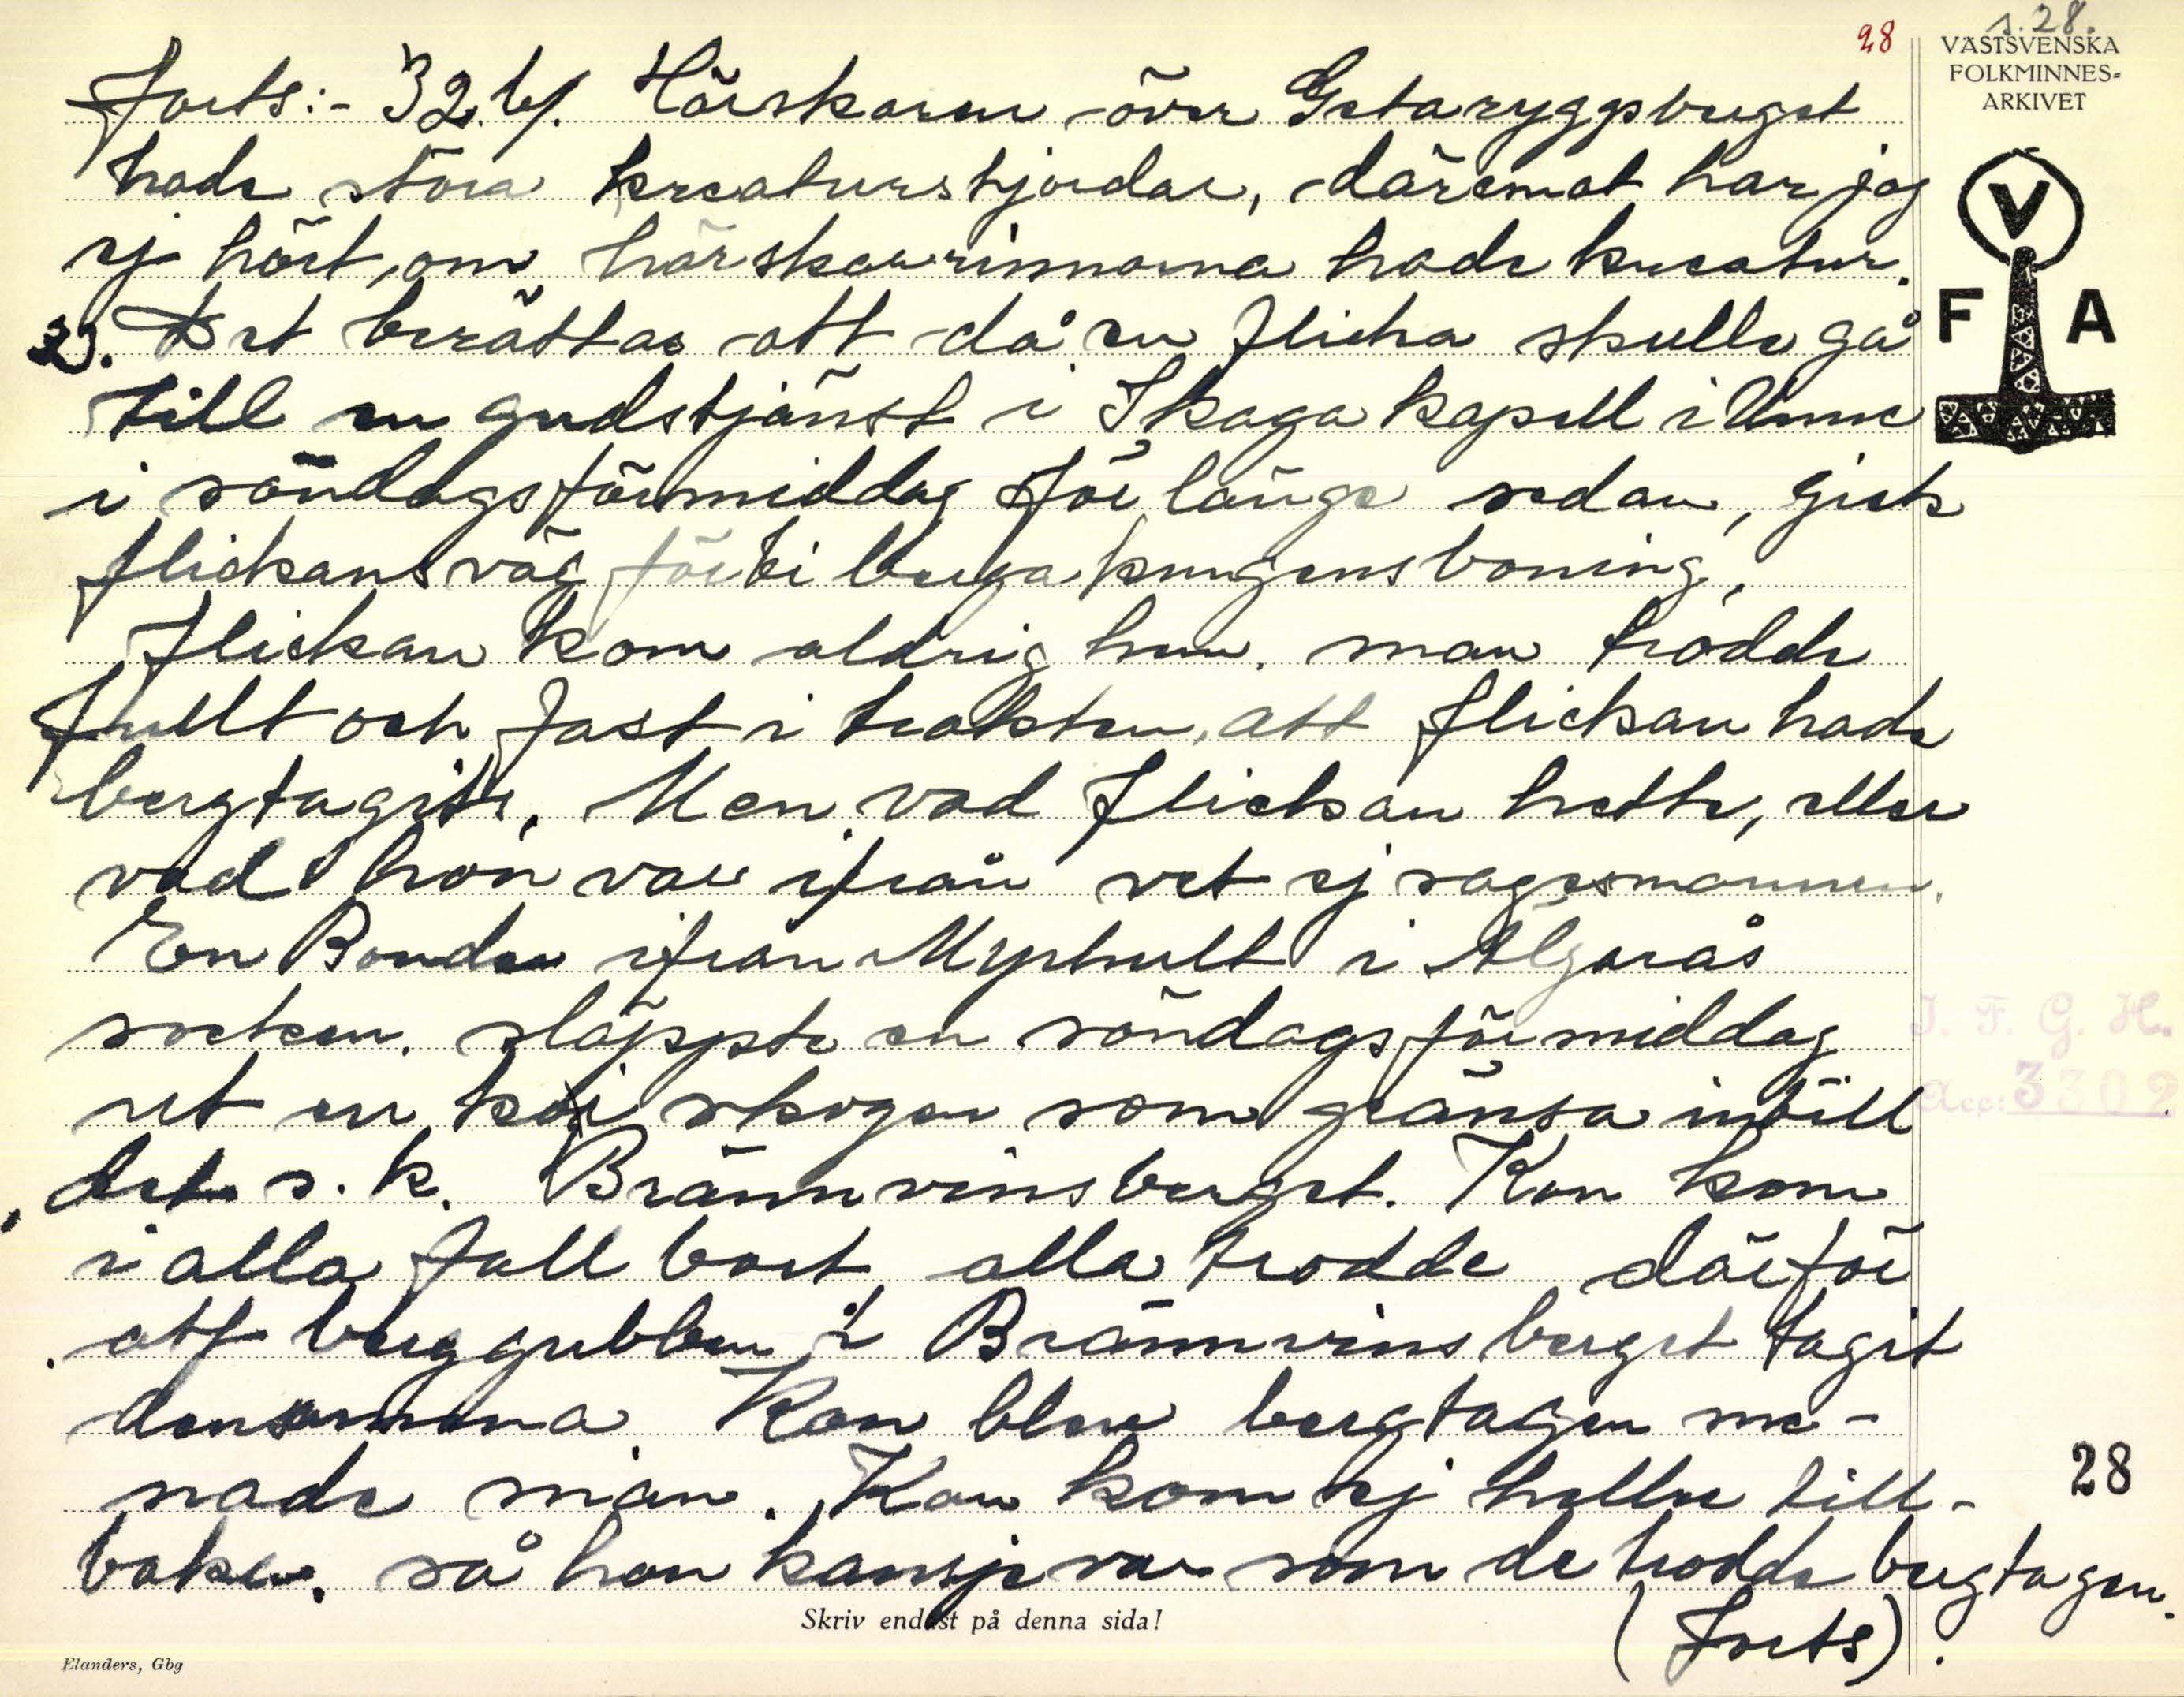 28
s. 28.
VÄSTSVENSKA
FOLKMINNES-
ARKIVET
V
F A
Forts:- 32. b/. Härskaren över Getaryggsberget
hade stora kreaturshjordar, däremot har jag
ej hört, om härskarinnorna hade kreatur.
33. Det berättas att då en flicka skulle gå
till en gudstjänst i Skaga kapell i Unne
i söndagsförmiddag för länge sedan, gick
flickans väg förbi bergakungens boning,
Flickan kom aldrig hem. man trodde
fullt och fast i trakten, att flickan hade
bergtagits, Men vad flickan hette, eller
vad hon var ifrån vet ej sagesmannen.
En Bonde ifrån Myrhult i Älgarås
socken. släppte en söndagsförmiddag
ut en ko i skogen som gränsa intill
det s. k. Brännvinsberget. Kon kom
i alla fall bort, alla trodde därför
att berggubben i Brännvinsberget tagit
densamma. Kon blev bergtagen me-
nade man. Kon kom ej heller till-
baka. så hon kansje var som de trodde bergtagen.
(Forts).
I. F. G. H.
Acc: 3302
28
Skriv endast på denna sida!
Elanders, Gbg